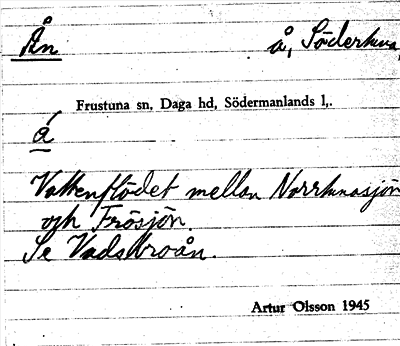 Ån å, Södertuna,
Frustuna sn, Daga hd, Södermanlands l,.
á
Vattenflödet mellan Norrtunasjön
och Frösjön.
Se Vadsbroån.
Artur Olsson 1945